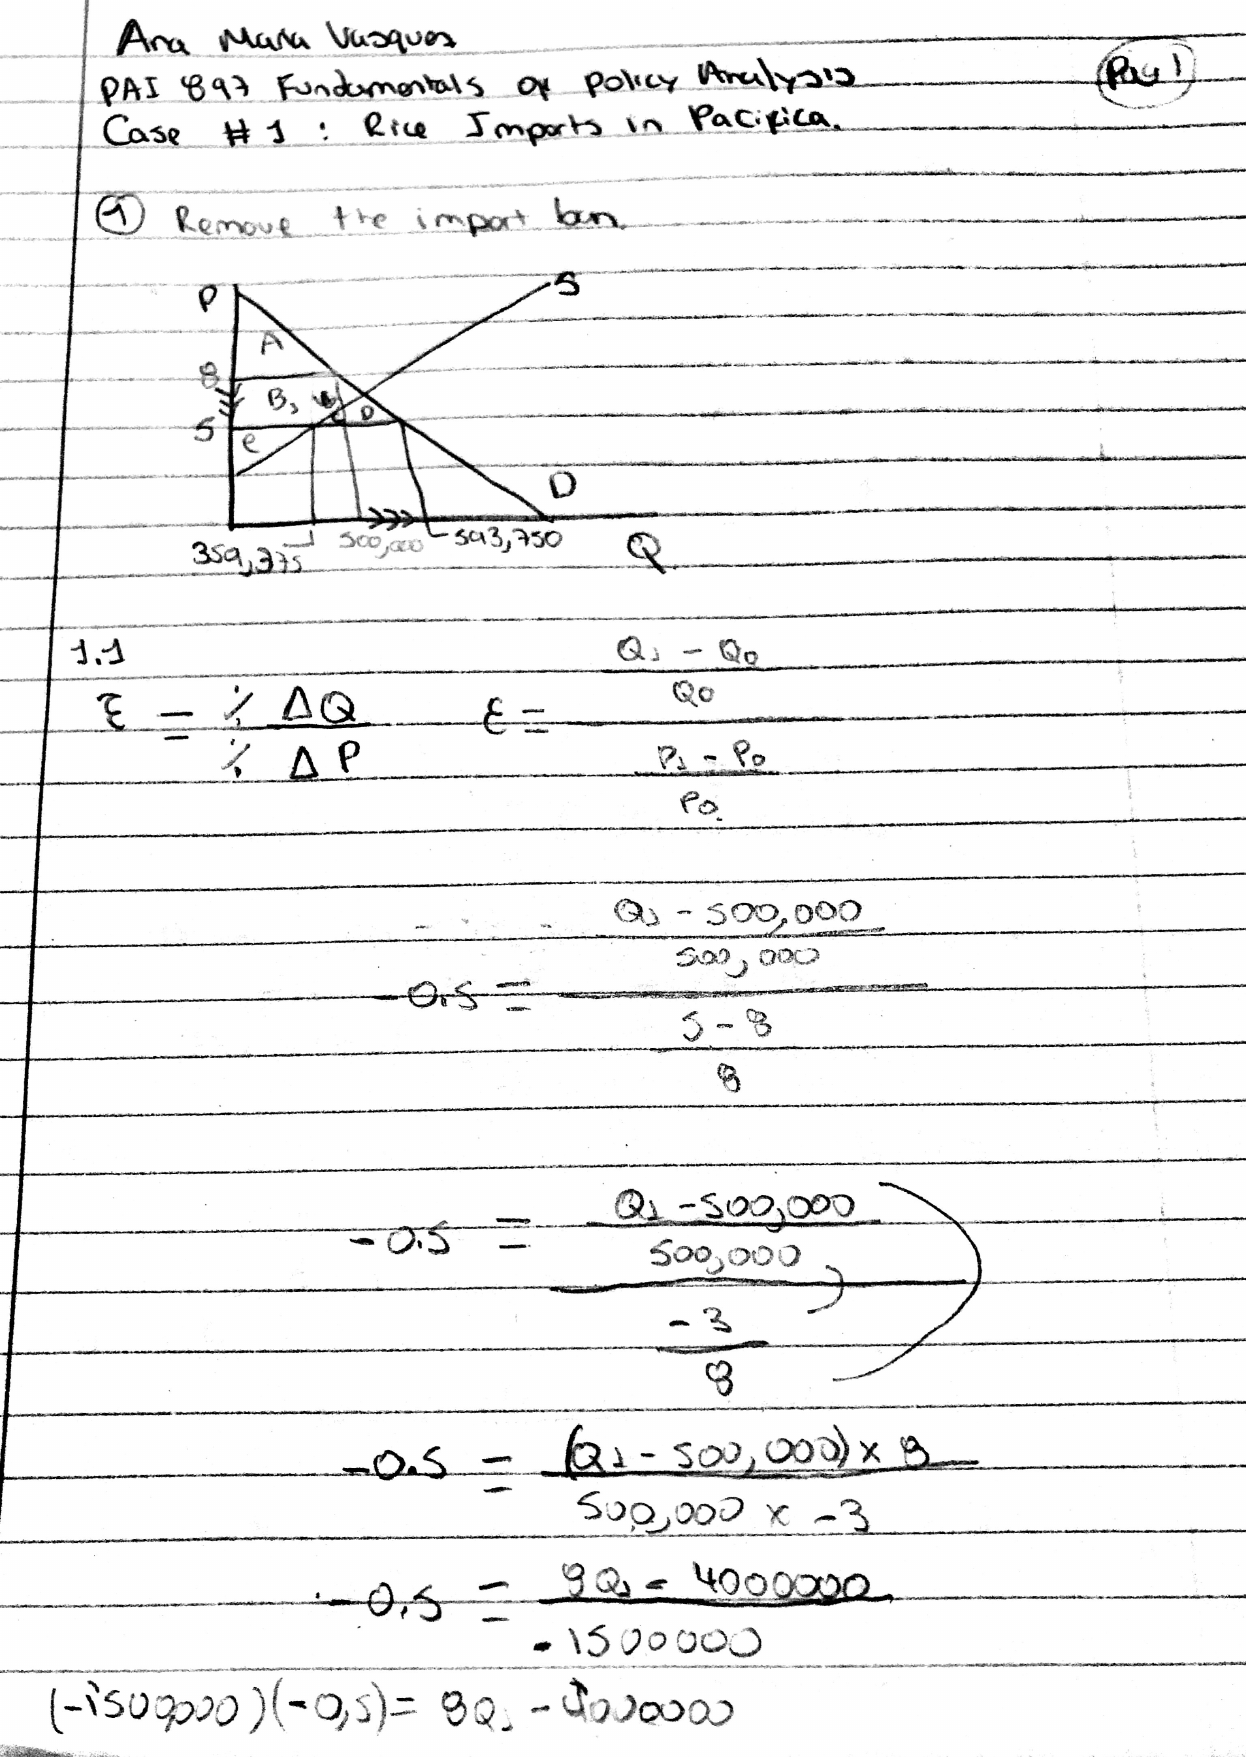 Ana Maria Vasquez
PAI 897 Fundamentals of Policy Analysis
Pag 1
Case #1: Rice Imports in Pacifica.
① Remove the import ban.
P
S
A
8
B,
D
5
C
D
359,375
500,000
593,750
Q
1.1
Q1 - Q0
Q0
ξ = % ΔQ
% ΔP
ε =
P1 - P0
P0
Q1 - 500,000
500,000
-0.5 =
5 - 8
8
Q1 - 500,000
-0.5 =
500,000
-3
8
-0.5 = (Q1 - 500,000) x 8
500,000 x -3
-0.5 = 8Q1 - 4000000
-1500000
(-1500,000)(-0,5) = 8Q1 - 4000000